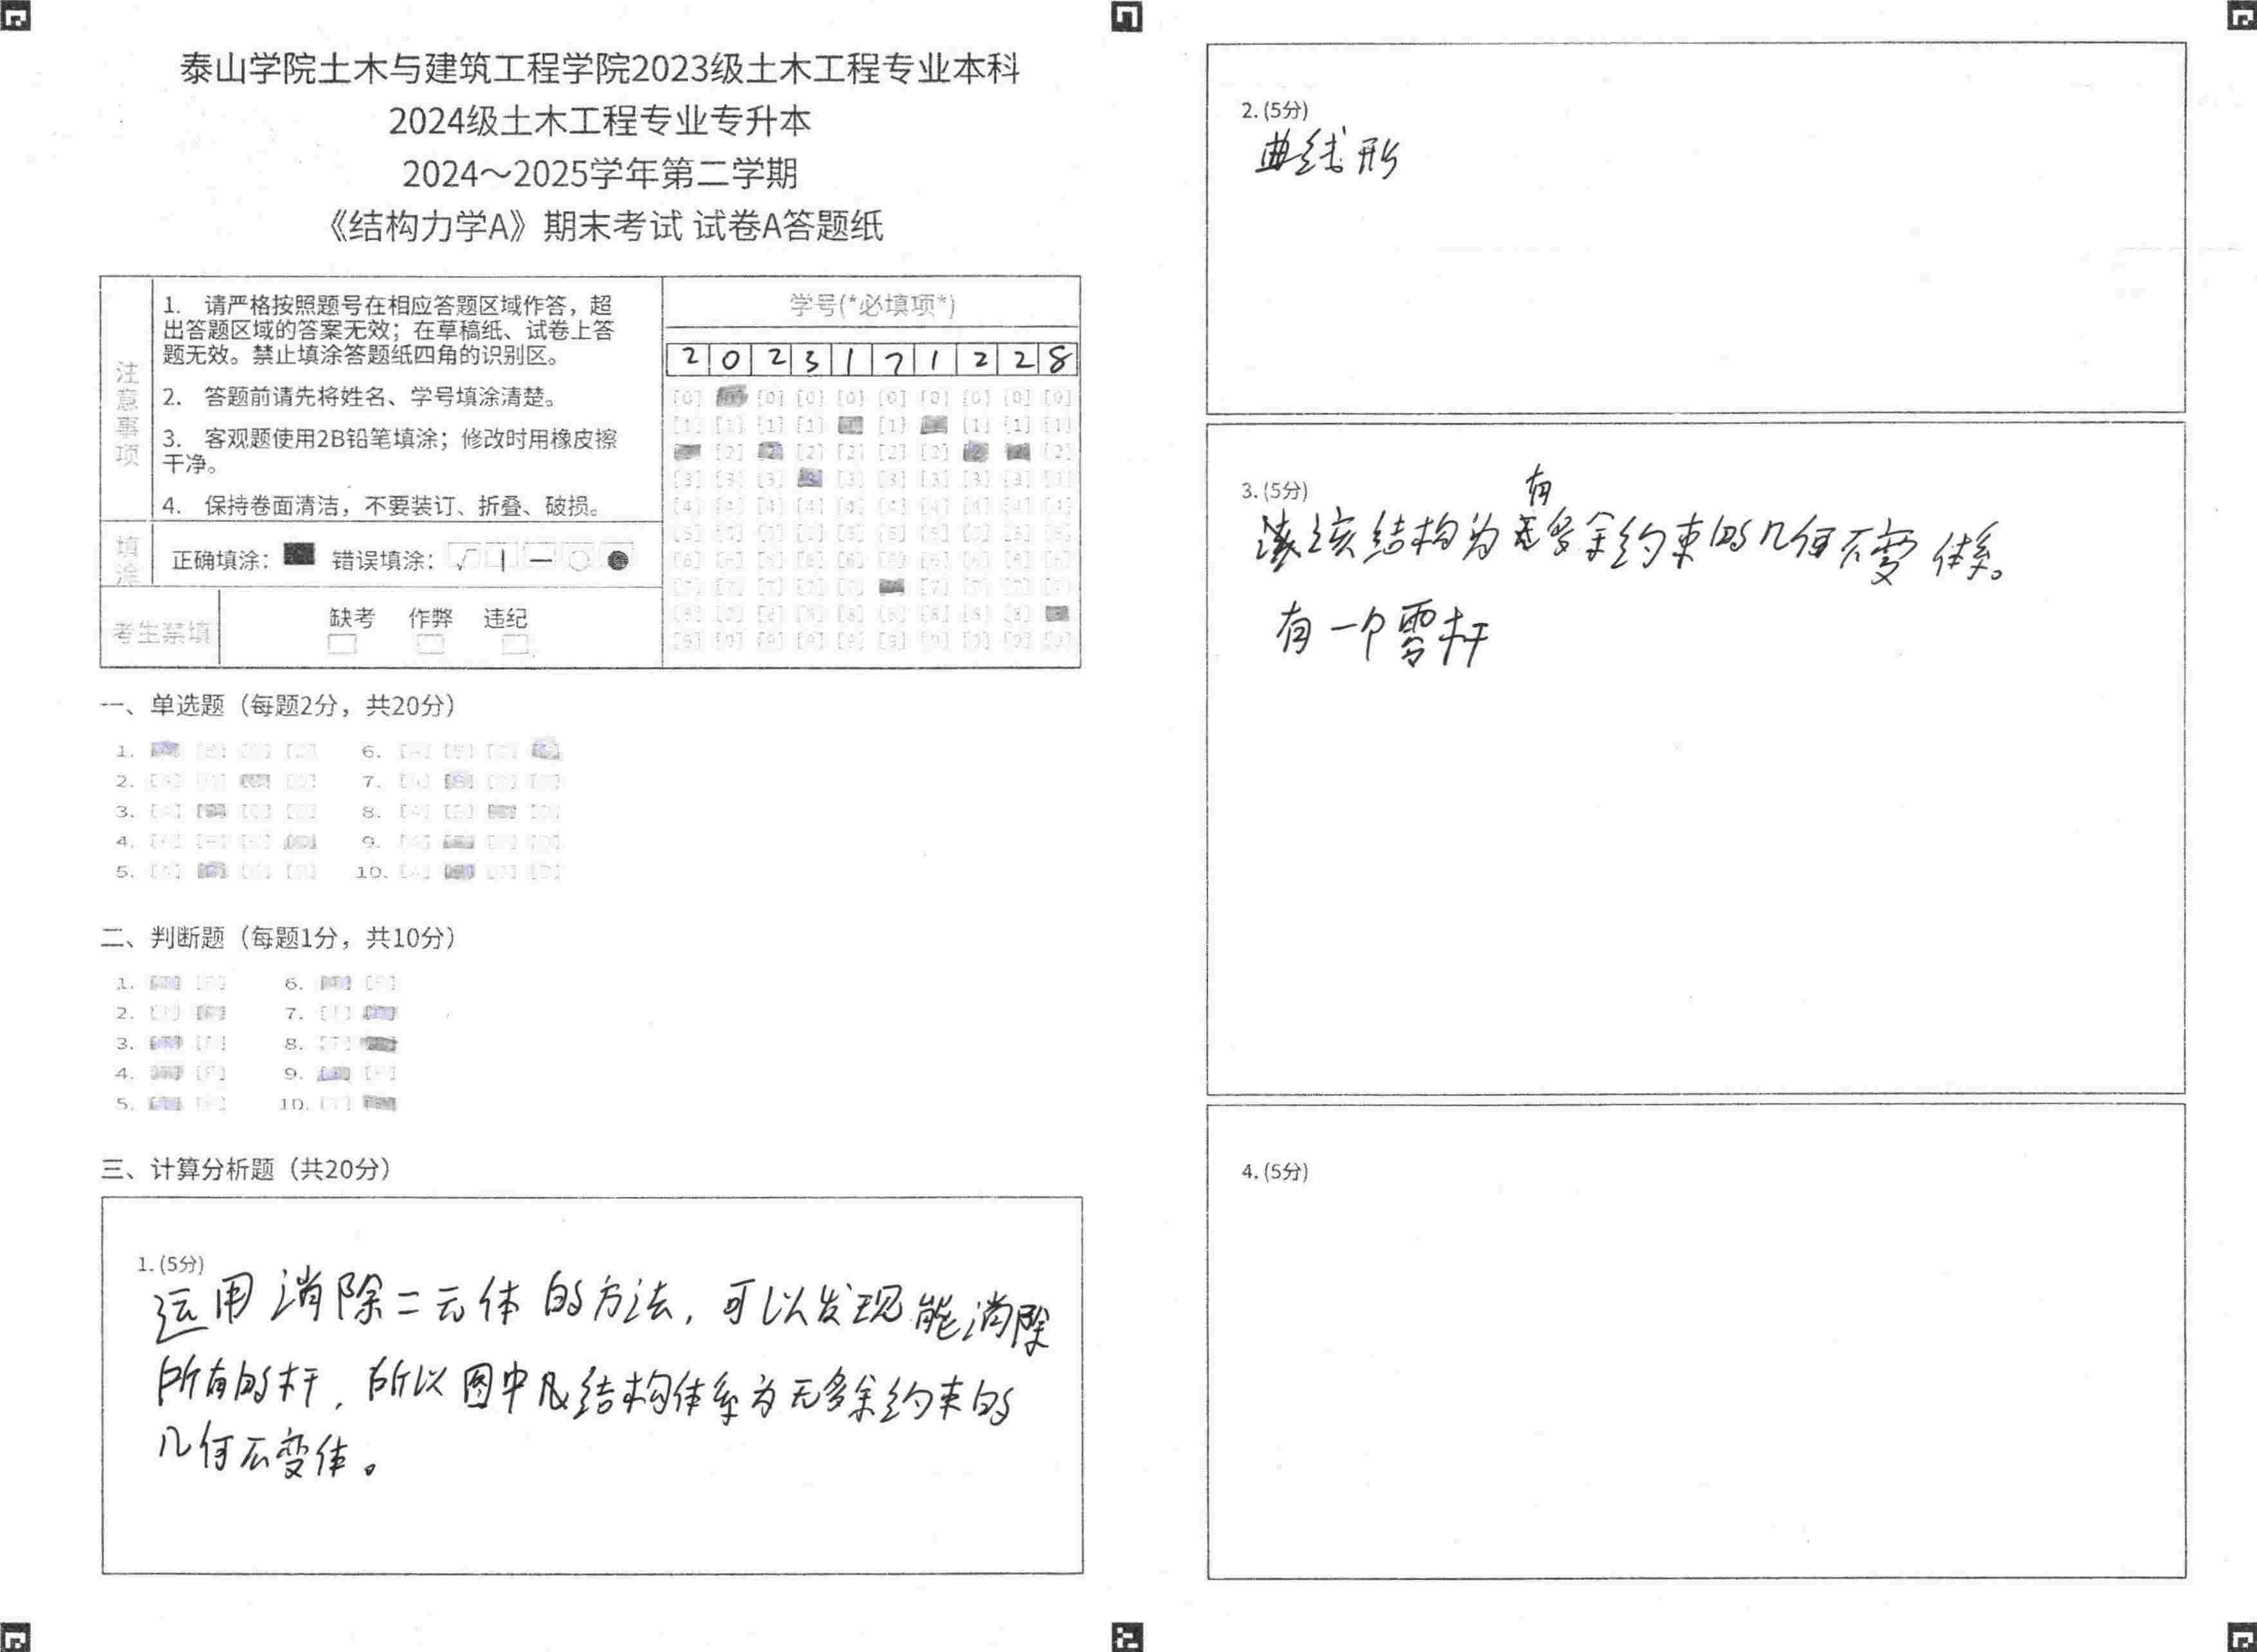 泰山学院土木与建筑工程学院2023级土木工程专业本科
2024级土木工程专业专升本
2024～2025学年第二学期
《结构力学A》期末考试 试卷A答题纸
注意事项
1. 请严格按照题号在相应答题区域作答，超
出答题区域的答案无效；在草稿纸、试卷上答
题无效。禁止填涂答题纸四角的识别区。
2. 答题前请先将姓名、学号填涂清楚。
3. 客观题使用2B铅笔填涂；修改时用橡皮擦
干净。
4. 保持卷面清洁，不要装订、折叠、破损。
填涂
正确填涂： 错误填涂：
考生禁填
缺考 作弊 违纪
学号(*必填项*)
2 0 2 3 1 7 1 2 2 8
一、单选题（每题2分，共20分）
1. 6.
2. 7.
3. 8.
4. 9.
5. 10.
二、判断题（每题1分，共10分）
1. 6.
2. 7.
3. 8.
4. 9.
5. 10.
三、计算分析题（共20分）
1.(5分)
运用消除二元体的方法，可以发现能消除
所有的杆，所以图中结构体系为无多余约束的
几何不变体。
2.(5分)
曲线形
3.(5分)
有
该结构为多余约束的几何不变体系。
有一个零杆
4.(5分)